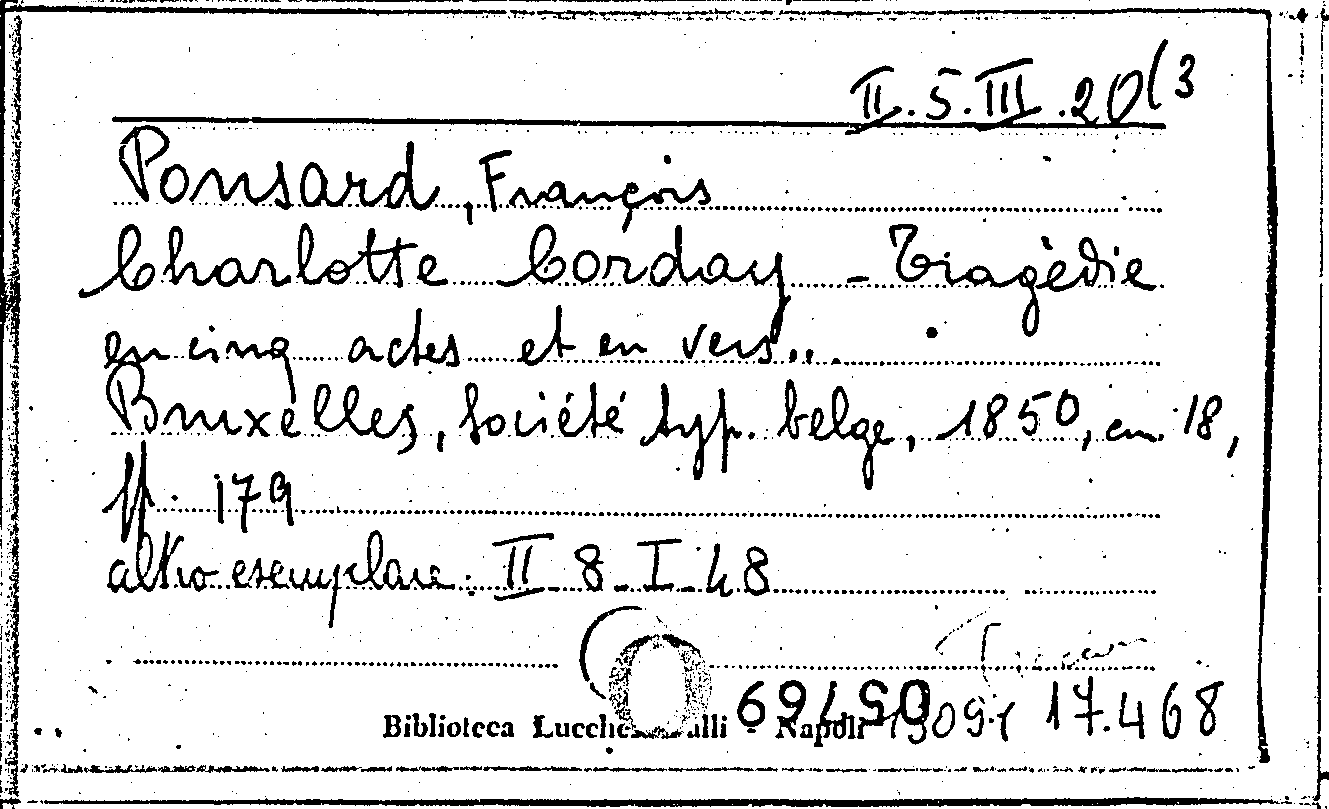 II.5.III.20(3
Ponsard, François
Charlotte Corday - Tragèdie
en cinq actes et en vers...
Bruxelles, Société typ. belge, 1850, cm. 18,
pp. 179
altro esemplare: II 8 I 48
Biblioteca Lucchesi Palli - Napoli 17.468